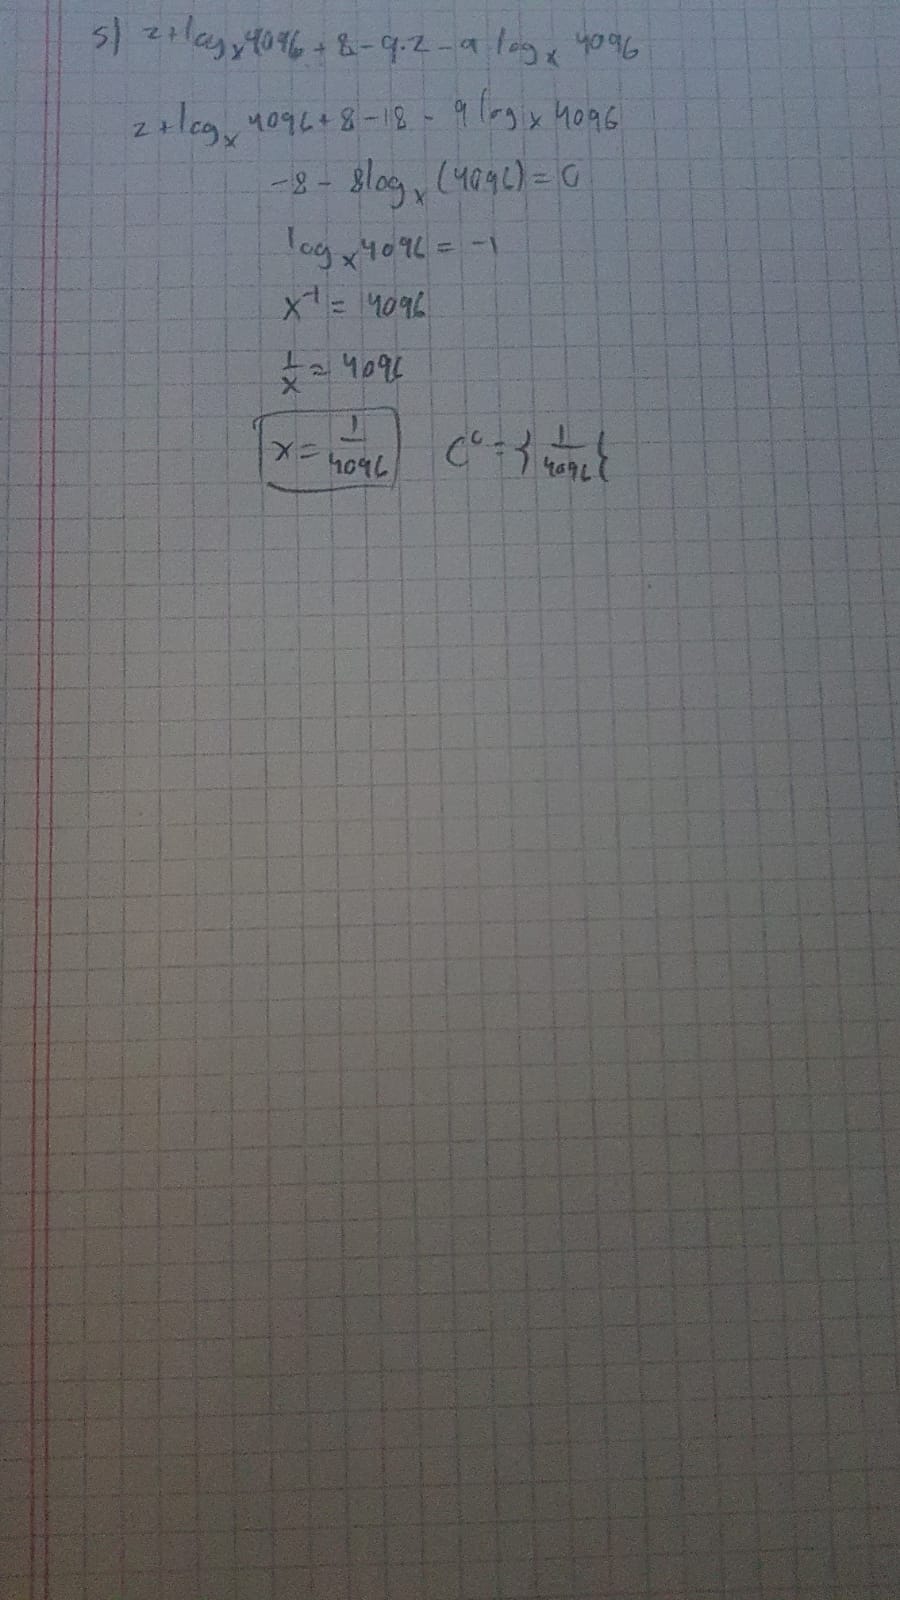 5) 2+log_x 4096 + 8 - 9.2 - 9 log_x 4096
2+log_x 4096 + 8 - 18 - 9 log_x 4096
-8 - 8log_x (4096) = 0
log_x 4096 = -1
x^-1 = 4096
1/x = 4096
x = 1/4096 C^c = } 1/4096 {